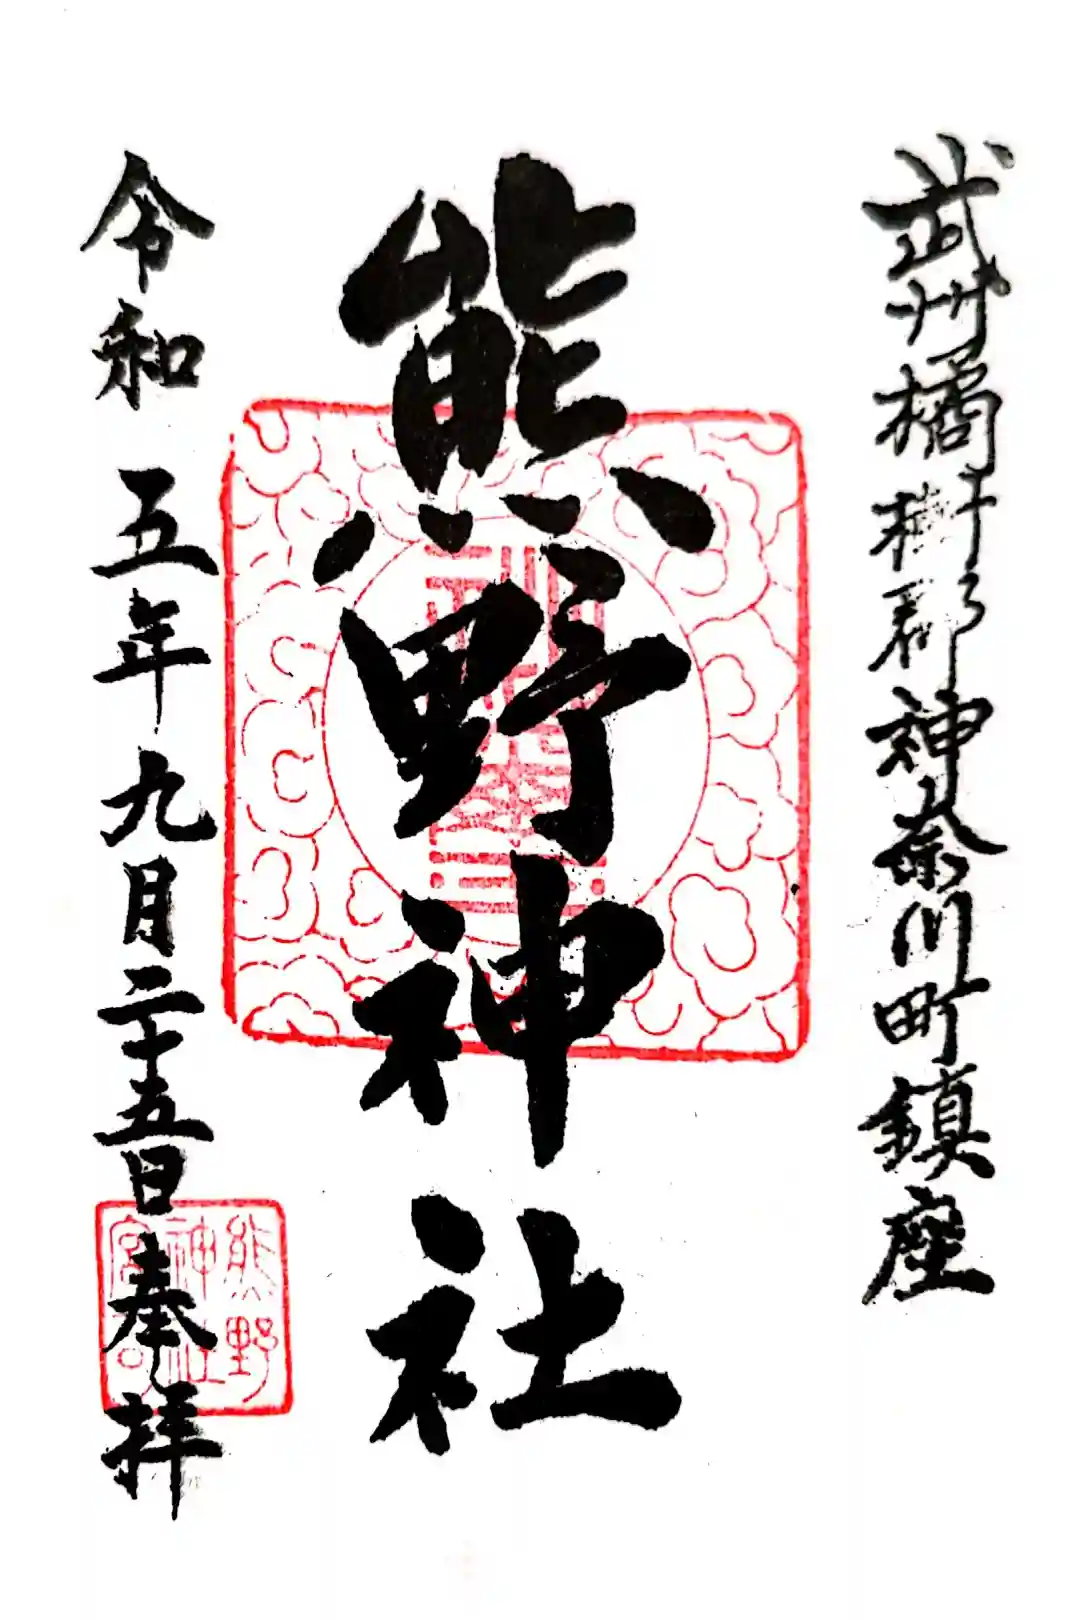 武州橘樹郡神奈川町鎮座
熊野神社
令和五年九月二十五日奉拝
熊野
神社
宮司